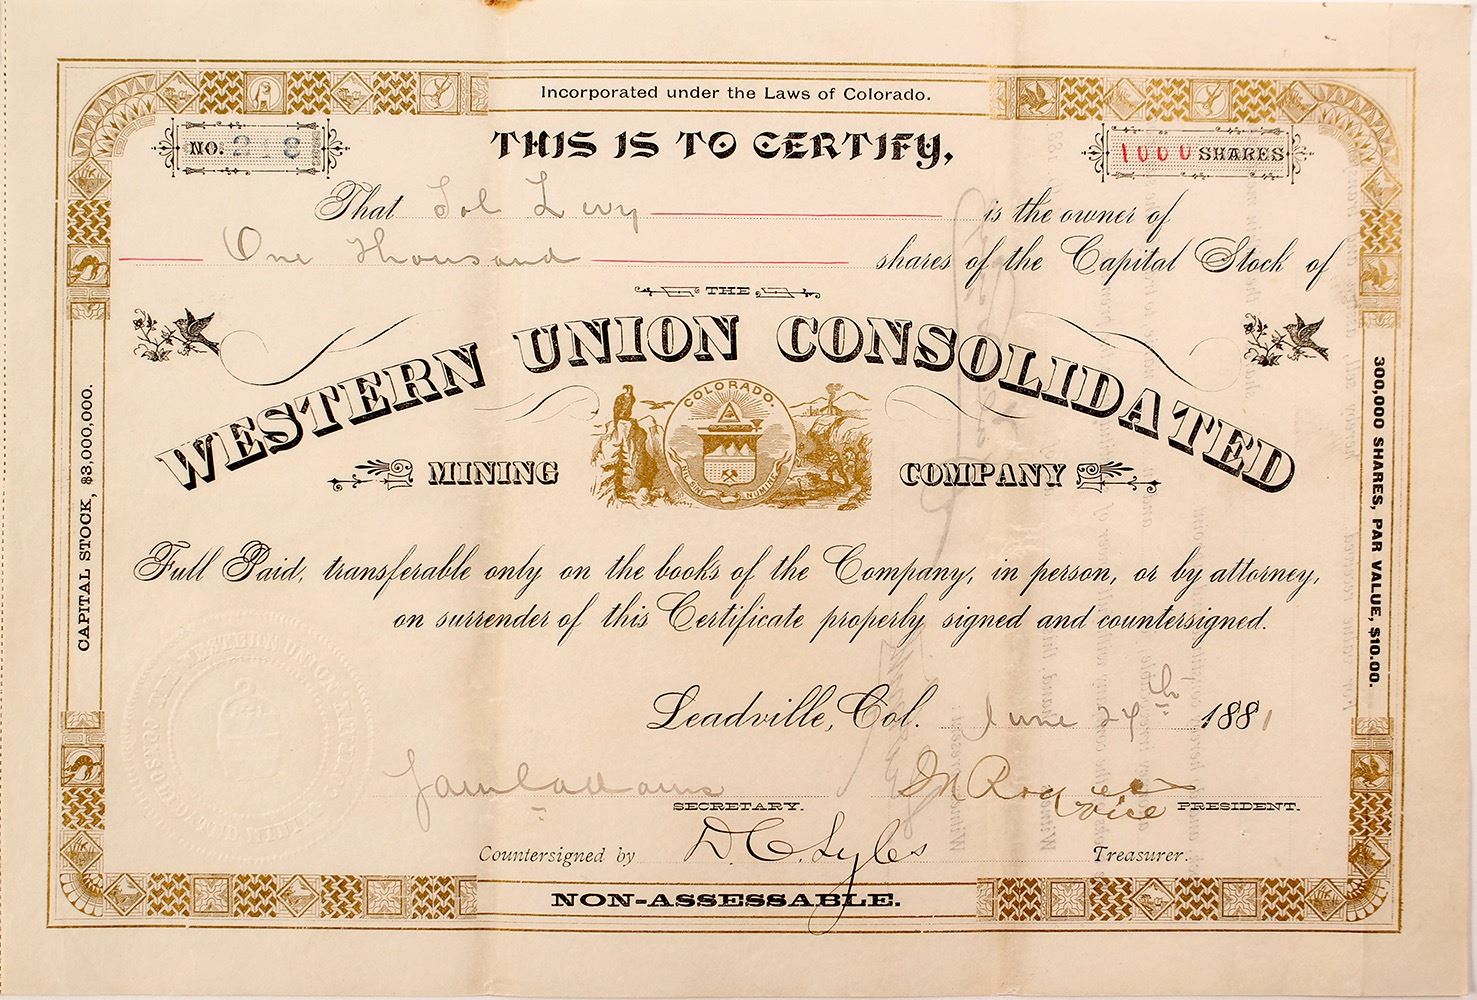 Incorporated under the Laws of Colorado.
NO. 218
THIS IS TO CERTIFY,
1000 SHARES
That Sol Levy is the owner of
One Thousand shares of the Capital Stock of
THE
WESTERN UNION CONSOLIDATED
MINING COMPANY
COLORADO.
CAPITAL STOCK, $3,000,000.
300,000 SHARES, PAR VALUE, $10.00.
Full Paid, transferable only on the books of the Company, in person, or by attorney,
on surrender of this Certificate properly signed and countersigned.
Leadville, Col. June 24th 1881
SECRETARY.
Vice PRESIDENT.
Countersigned by D. C. Lyles Treasurer.
NON-ASSESSABLE.